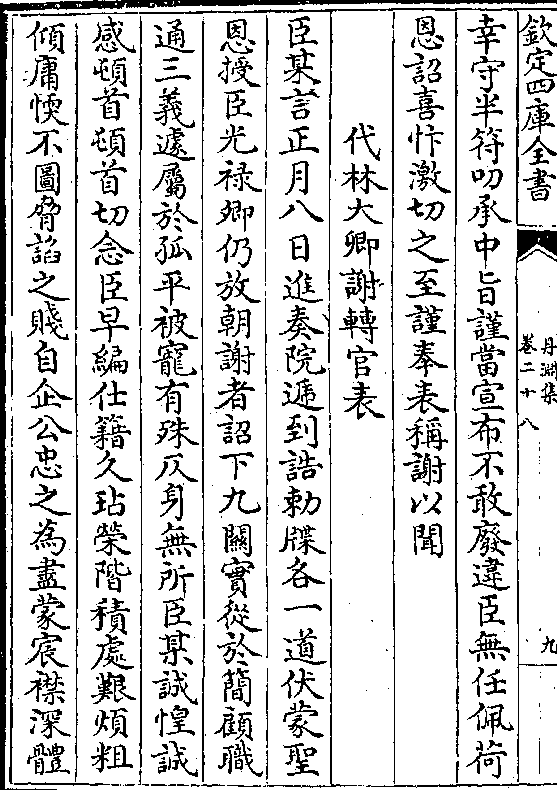 欽定四庫全書
丹淵集
卷二十八
九
幸守半符叨承中旨謹當宣布不敢廢違臣無任佩荷
恩詔喜忭激切之至謹奉表稱謝以聞
代林大卿謝轉官表
臣某言正月八日進奏院遞到誥勅牒各一道伏蒙聖
恩授臣光祿卿仍放朝謝者詔下九闗實從於簡顧職
通三義遽屬於孤平被寵有殊仄身無所臣某誠惶誠
感頓首頓首切念臣早編仕籍久玷榮階積處艱煩粗
傾庸愞不圖脅諂之賤自企公忠之為盡蒙宸襟深體